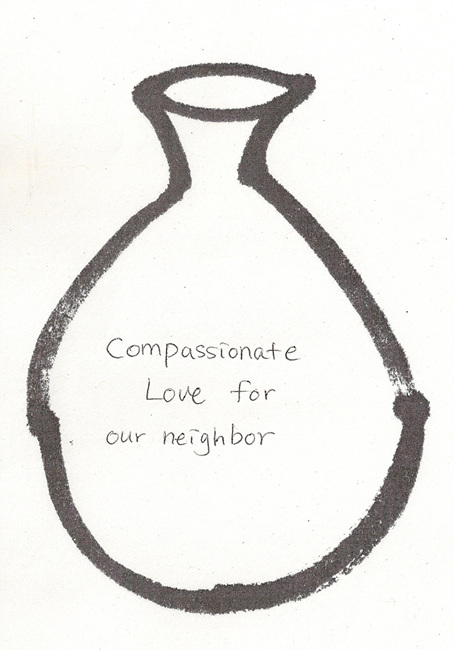 Compassionate
Love for
our neighbor